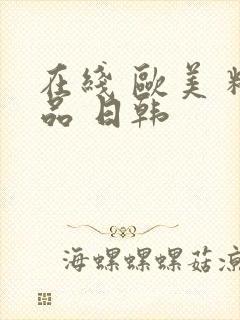 在綫 歐美 精
品 日韩
海螺螺螺菇凉